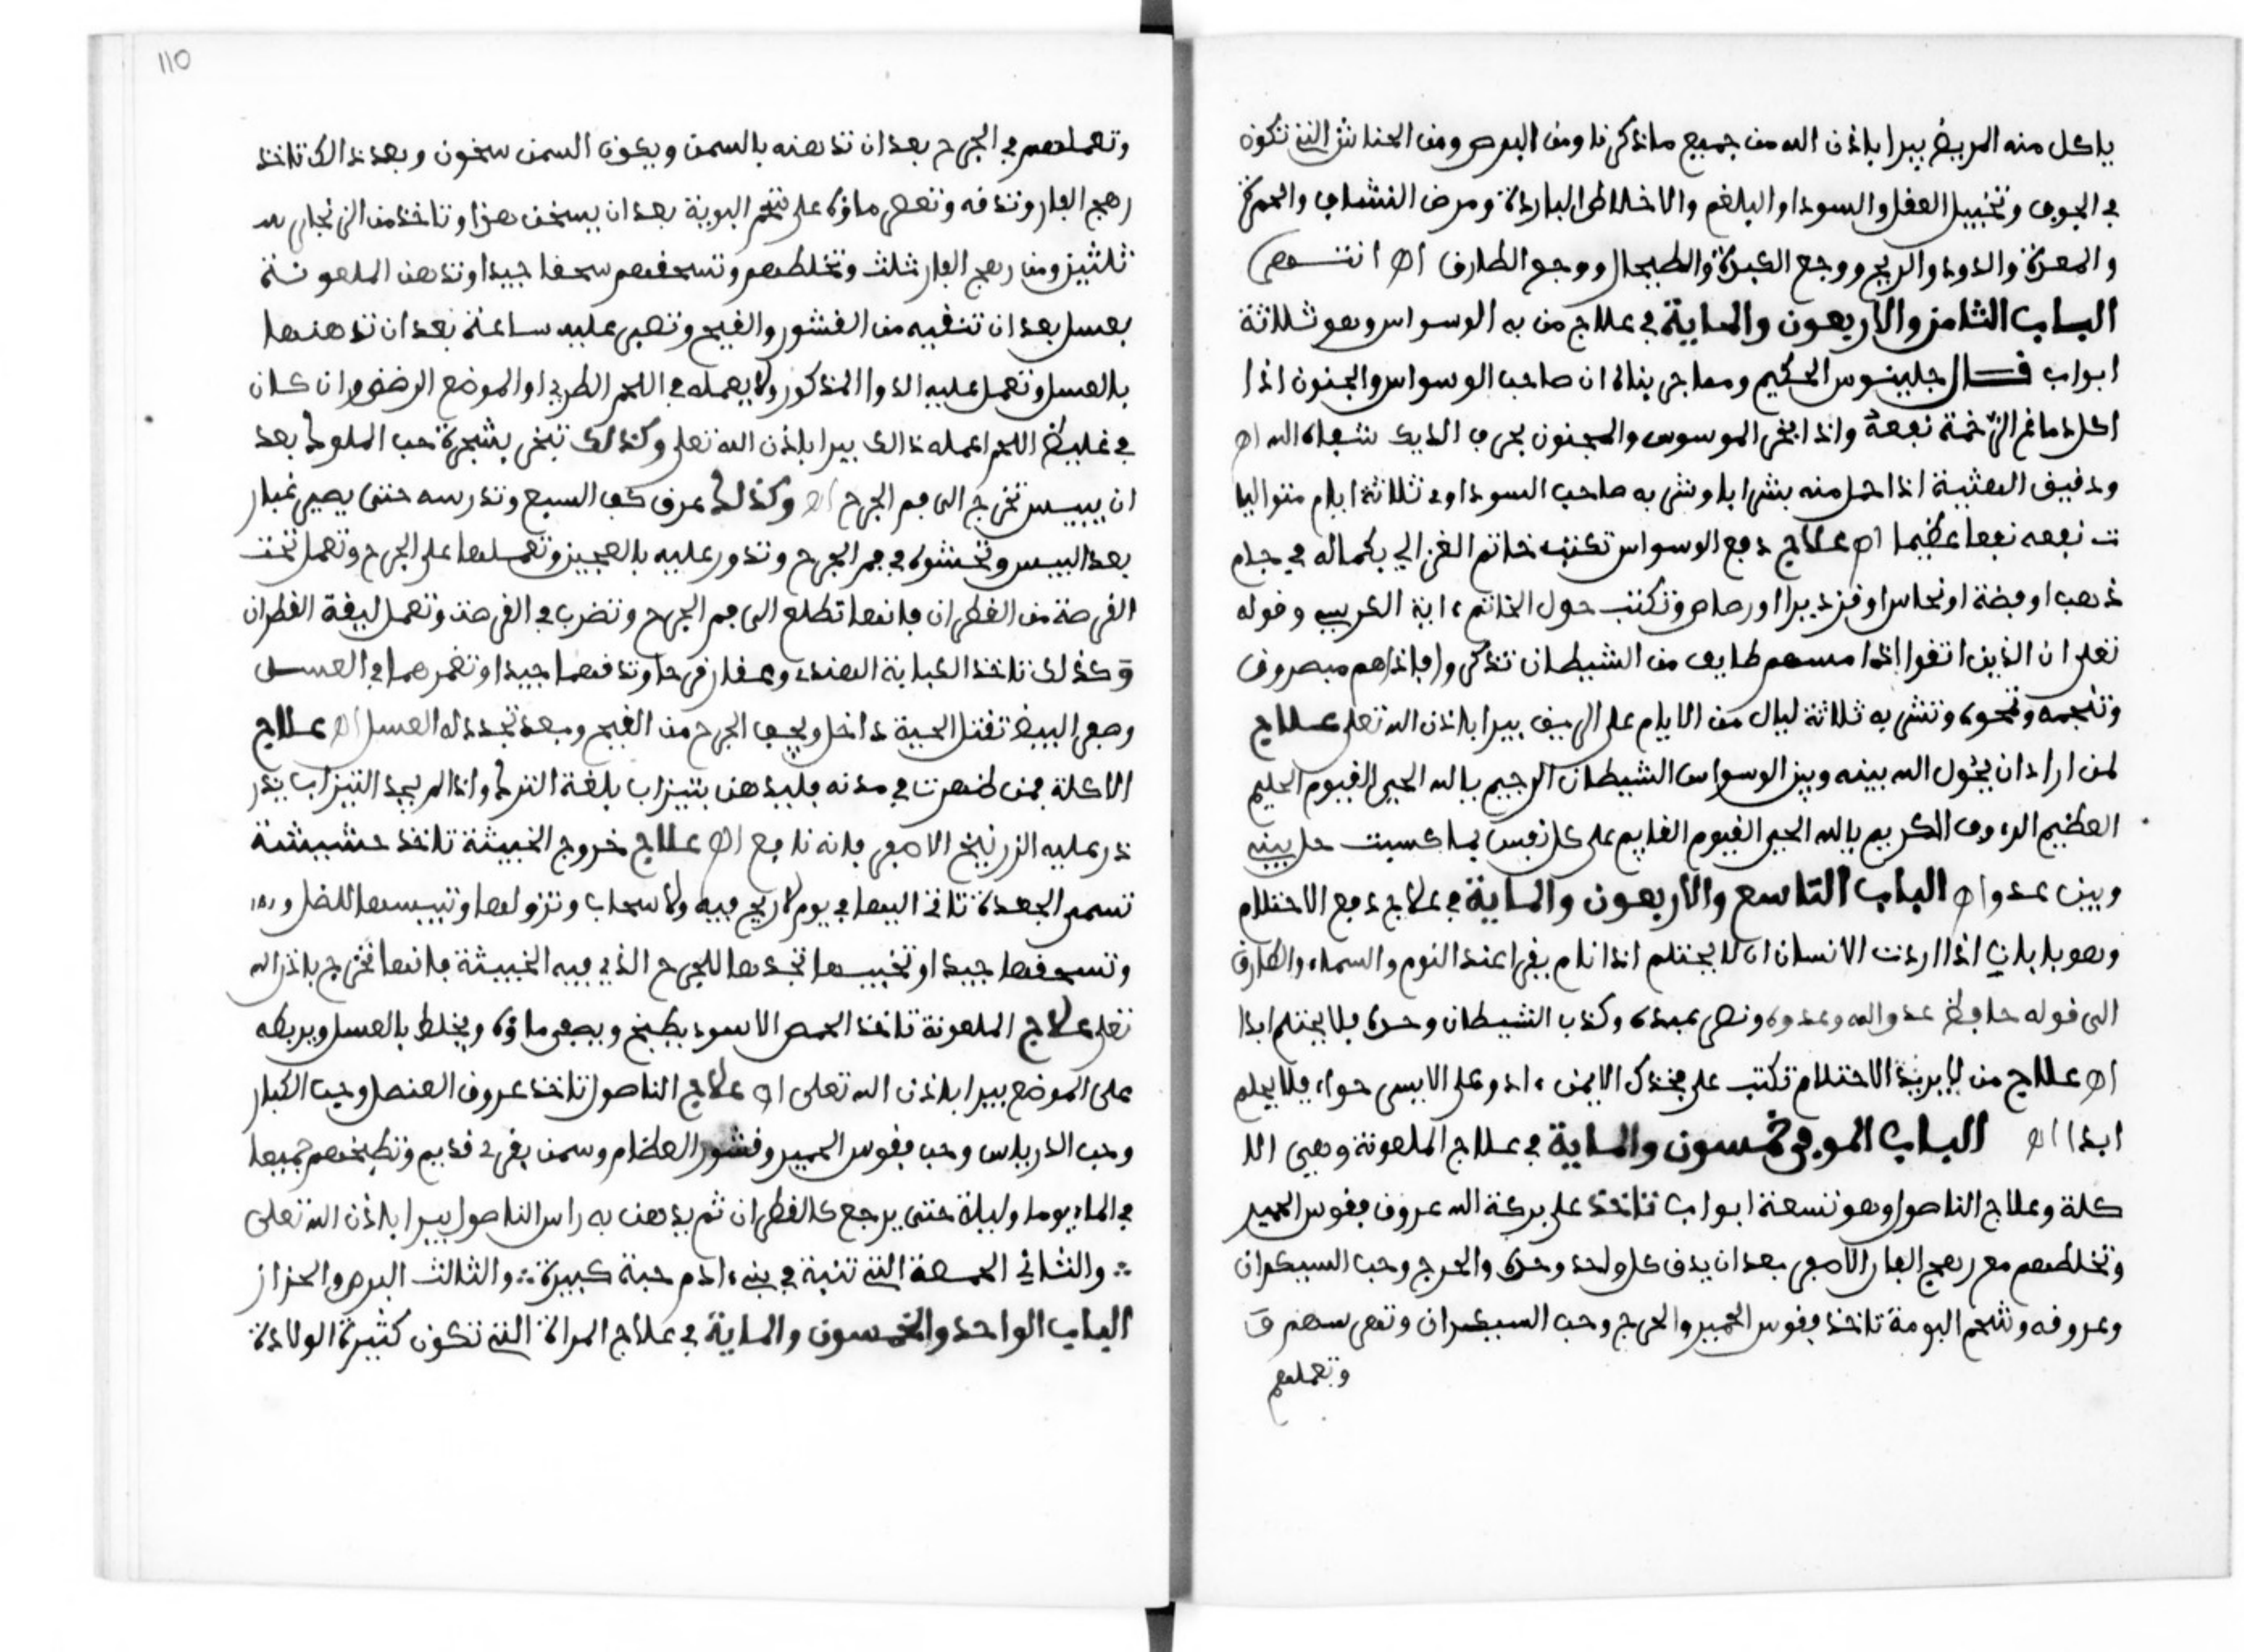 ياكل منه المريض يبرا باذن الله من جميع ما ذكرنا ومن البرص ومن الحناش التي تكون
في الجوف وتخبيل العقل والسودا والبلغم والاخلاط الباردة ومرض النشاب والحمرة
والمعدة والدود والريح ووجع الكبدة والطيحال ووجع الطارف اه انتهى
الباب الثامن والاربعون والماية في علاج من به الوسواس وهو ثلاثة
ابواب قال جلينوس الحكيم ومما جربناه ان صاحب الوسواس والجنون اذا
اكل دماغ الرخمة نفعه واذا بخر الموسوس والمجنون بعرف الديك شفاه الله اه
ودقيق العثية اذا حل منه بشراب وشربه صاحب السوداوي ثلاثة ايام متواليا
ت نفعه نفعا عظيما اه علاج دفع الوسواس تكتب خاتم الغزالي بكماله في جام
ذهب او فضة او نحاس او قزديرا او رصاص وتكتب حول الخاتم ءاية الكرسي وقوله
تعلى ان الذين اتقوا اذا مسهم طايف من الشيطان تذكروا فاذاهم مبصرون
وتنجمه وتمحوه وتشربه ثلاثة ليال من الايام على الريق يبرا باذن الله تعلى علاج
لمن اراد ان يحول الله بينه وبين الوسواس الشيطان الرجيم يالله الحي القيوم الحليم
العظيم الرءوف الكريم يالله الحي القيوم القايم على كل نفس بما كسبت حل بينه
وبين عدوا اه الباب التاسع والاربعون والماية في علاج دفع الاحتلام
وهو بابان اذا اردت الانسان ان لا يحتلم اذا نام يقرا عند النوم والسماء والطارق
الى قوله حافظ عدو الله وعدوه ونصر عبده وكذب الشيطان وحده فلا يحتلم ابدا
اه علاج من لا يريد الاحتلام تكتب على فخذك الايمن ءادم وعلى الايسر حواء فلا يحلم
ابدا اه الباب الموفي خمسون والماية في علاج الملعونة وهي الا
كلة وعلاج الناصول وهو تسعة ابواب تاخذ على بركة الله عروق فقوس الحمير
وتخلطهم مع رهج الفار الاصفر بعد ان يدق كل واحد وحده والحرج وحب السيكران
وعروقه وشحم البومة تاخذ فقوس الحمير والحرج وحب السيكران وتعصرهم
وتعملهم
110
وتعملهم في الجرح بعد ان تدهنه بالسمن ويكون السمن سخون وبعد ذالك تاخذ
رهج الفار وتدقه وتعصر ماؤه على شحم البومة بعد ان يسخن هذا وتاخذ من الزنجار
ثلثين ومن رهج الفار ثلث وتخلطهم وتسحقهم سحقا جيدا وتدهن الملعونة
بعسل بعد ان تنقيه من القشور والقيح وتصبر عليه ساعة بعد ان تدهنها
بالعسل وتعمل عليه الدوا المذكور ولا يعمله في اللحم الطري او الموضع الرضف وان كان
في غليظ اللحم اعمله ذالك يبرا باذن الله تعلى وكذلك تبخر بشجرة حب الملوك بعد
ان ييبس تخرج الى فم الجرح اه وكذلك عرق كف السبع وتدرسه حتى يصير غبار
بعد اليبس وتحشوه في فم الجرح وتدور عليه بالعجين وتعملها على الجرح وتعمل تحت
القرصة من القطران فانها تطلع الى فم الجرح وتضرب في القرصة وتعمل ليقة القطران
وكذلك تاخذ الكبابة الهندي وعقار قرحا وتدقهما جيدا وتغمرهما في العسل
وصفر البيض تقتل الحية داخل ويجف الجرح من القيح وبعد تجدد له العسل اه علاج
الاكلة فمن ظهرت في بدنه فليدهن بتيزاب بلغة الترك واذا لم يجد التيزاب يذر
ذر عليه الزرنيخ الاصفر فانه نافع اه علاج خروج الخبيثة تاخذ حشيشة
تسمى الجعدة تات اليها في يوم لا ريح فيه ولا سحاب وتزولها وتيبسها للظل
وتسحقها جيدا وتخبيها تجدها للجرح الذي فيه الخبيثة فانها تخرج باذن الله
تعلى علاج الملعونة تاخذ الحمص الاسود يطبخ ويصفى ماؤه ويخلط بالعسل ويربطه
على الموضع يبرا باذن الله تعلى اه علاج الناصول تاخذ عروق العنصل وحب الكبار
وحب الدرياس وحب فقوس الحمير وقشور العظام وسمن بقري قديم وتطبخهم جميعا
في الماء يوما وليلة حتى يرجع كالقطران ثم يدهن به راس الناصول يبرا باذن الله تعلى
والثاني الجمعة التي تنبة في بني ءادم حبة كبيرة والثالث البرص والحزاز
الباب الواحد والخمسون والماية في علاج المراة التي تكون كثيرة الولادة